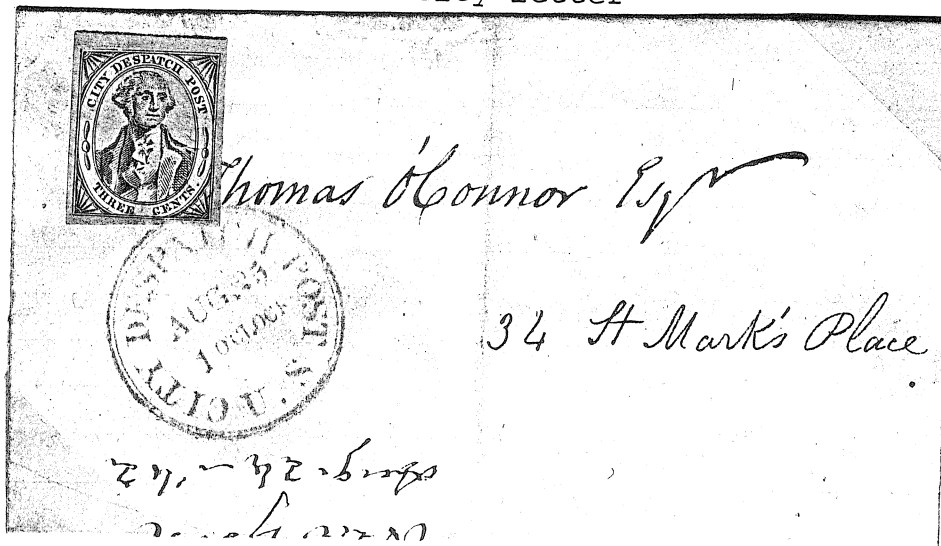 CITY DESPATCH POST
THREE CENTS.
Thomas O'Connor Esqr
34 St Mark's Place
U.S. CITY DESPATCH POST
AUG. 25
1 O'CLOCK
Aug. 24 - '42
New York